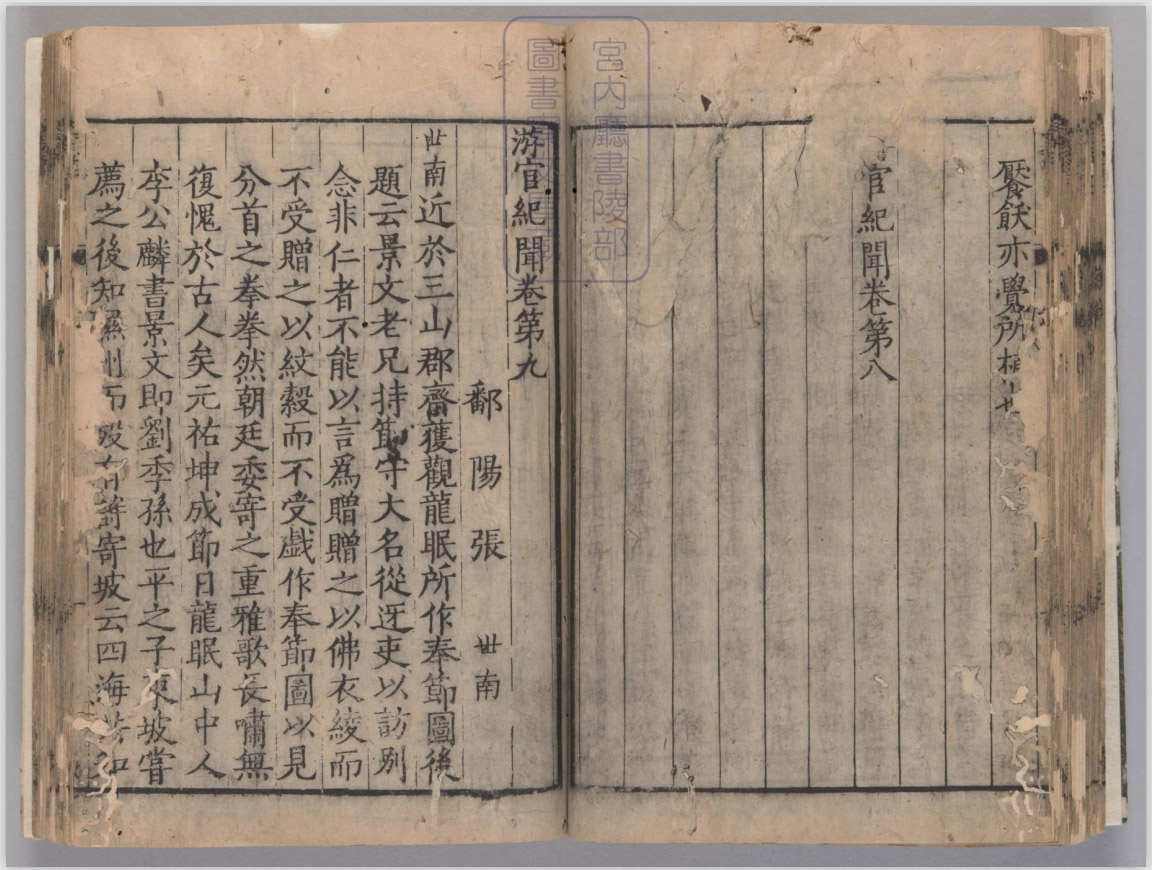 宮内廳書陵部
圖書
饜飫亦覺所
宦紀聞卷第八
游宦紀聞卷第九
鄱陽張 世南
世南近於三山郡齋獲觀龍眠所作奉節圖後
題云景文老兄持節守大名從迓吏以訪别
念非仁者不能以言爲贈贈之以佛衣綾而
不受贈之以紋縠而不受戲作奉節圖以見
分首之拳拳然朝廷委寄之重雅歌長嘯無
復愧於古人矣元祐坤成節日龍眠山中人
李公麟書景文即劉季孫也平之子東坡嘗
薦之後知隰州而殁有詩寄坡云四海共知